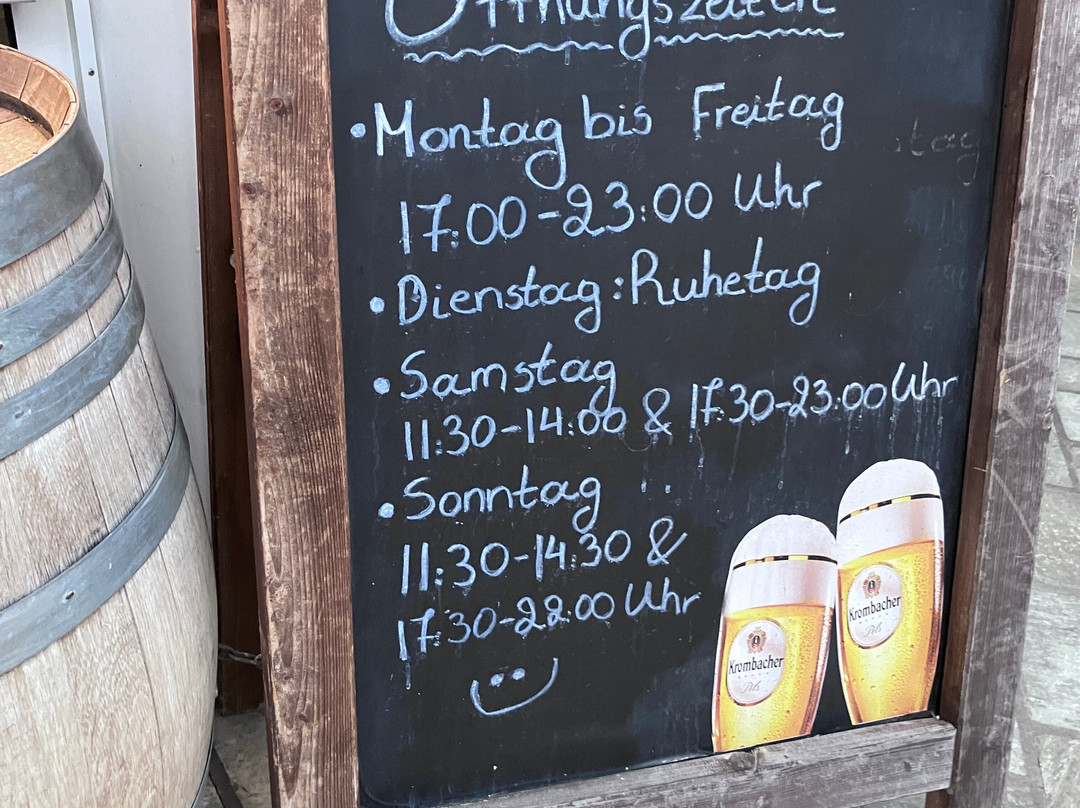 Öffnungszeiten
• Montag bis Freitag
17:00-23:00 Uhr
• Dienstag: Ruhetag
• Samstag
11:30-14:00 & 17:30-23:00 Uhr
• Sonntag
11:30-14:30 &
17:30-22:00 Uhr
Krombacher
Pils
Krombacher
Pils